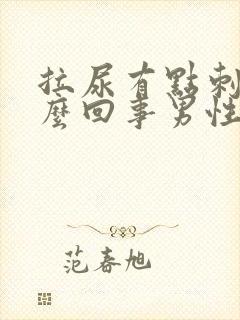 拉尿有點刺
麼回事男性
范春旭